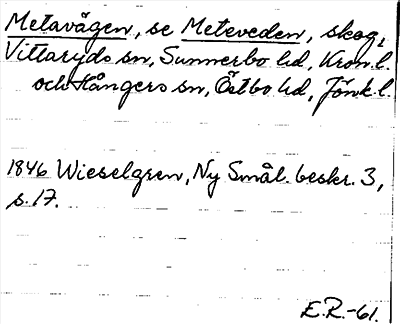 Metavägen, se Meteveden, skog,
Vittaryds sn, Sunnerbo hd, Kron. l.
och Hångers sn, Östbo hd, Jönk. l.
1846 Wieselgren, Ny Smål. beskr. 3,
s. 17.
E.R.-61.